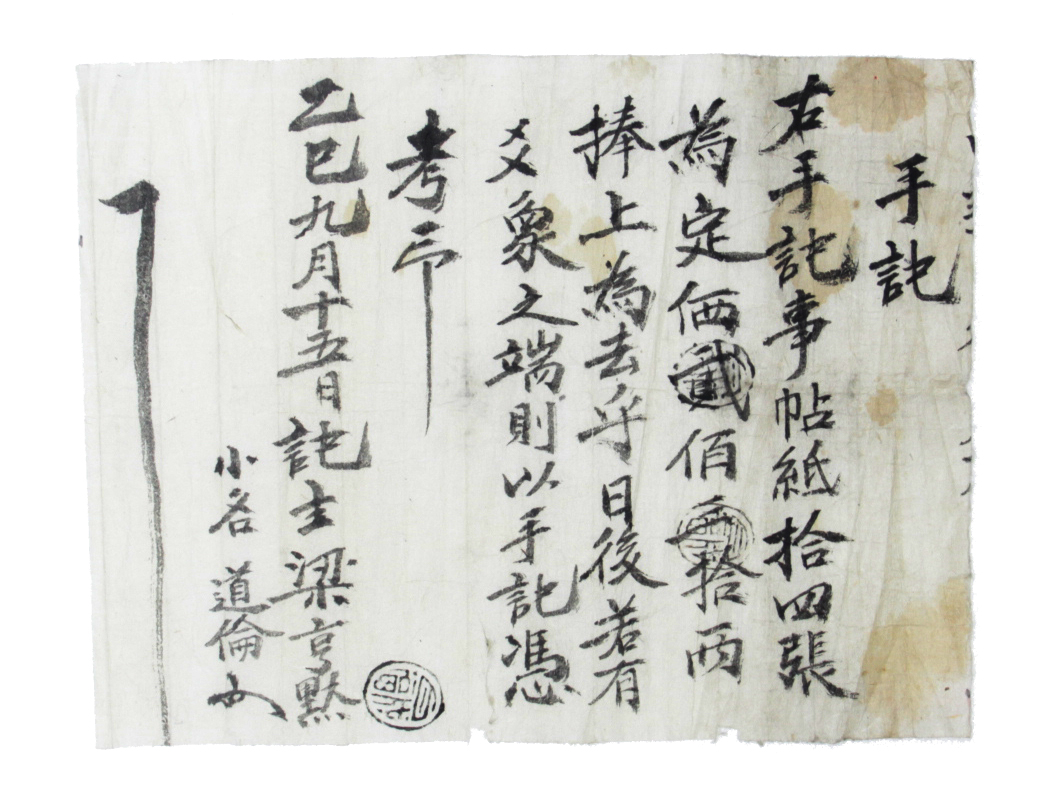 手記
右手記事帖紙拾四張
為定価貳佰拾両
捧上為去乎日後若有
爻象之端則以手記憑
考事
乙巳九月十五日記主梁亨黙
小名 道倫